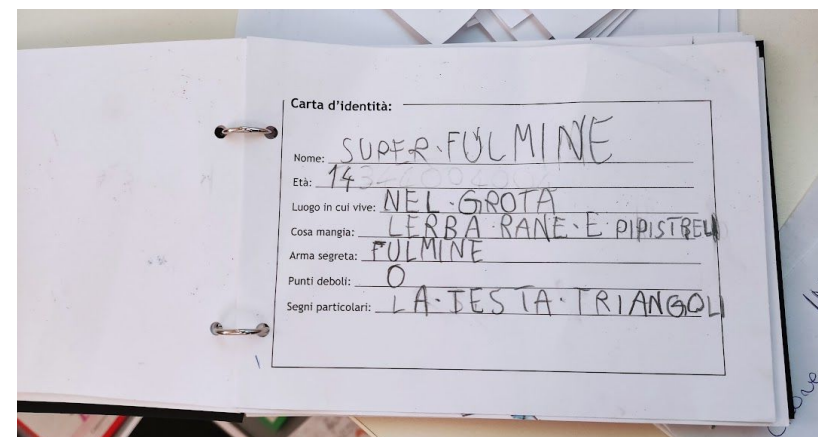 Carta d'identità:
Nome: SUPER·FULMINE
Età: 143
Luogo in cui vive: NEL·GROTA
Cosa mangia: LERBA·RANE·E PIPISTRELI
Arma segreta: FULMINE
Punti deboli: 0
Segni particolari: LA·TESTA·TRIANGOLI